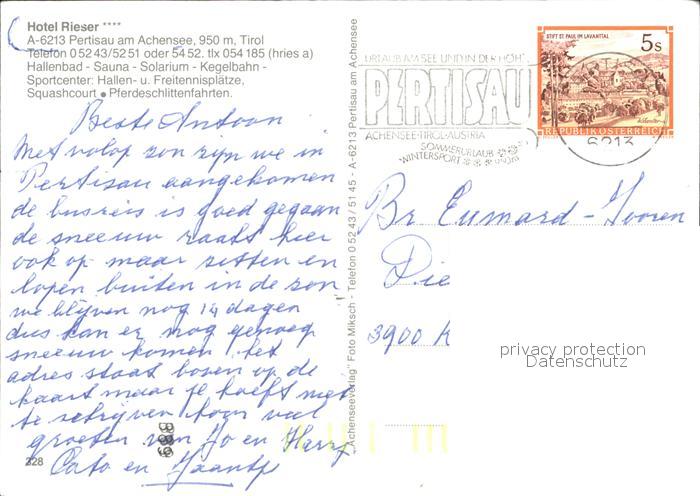 Hotel Rieser ****
A-6213 Pertisau am Achensee, 950 m, Tirol
Telefon 0 52 43/52 51 oder 54 52. tlx 054 185 (hries a)
Hallenbad - Sauna - Solarium - Kegelbahn -
Sportcenter: Hallen- u. Freitennisplätze,
Squashcourt • Pferdeschlittenfahrten.
Beste Antoon
Met volop zon zijn we in
Pertisau aangekomen
de busreis is goed gegaan
de sneeuw raakt hier
ook op maar zitten en
lopen buiten in de zon
we blijven nog 14 dagen
dus kan er nog genoeg
sneeuw komen het
adres staat boven op de
kaart maar je hoeft niet
te schrijven hoor veel
groeten van Jo en Harry
Cato en Jaantje
328
889
Achenseeverlag" Foto Miksch - Telefon 0 52 43 / 51 45 - A-6213 Pertisau am Achensee
URLAUB AM SEE UND IN DER HÖH'
PERTISAU
ACHENSEE-TIROL-AUSTRIA
SOMMERURLAUB
WINTERSPORT
STIFT ST. PAUL IM LAVANTTAL
5 s
REPUBLIK ÖSTERREICH
6213
Br. Eumard-Jooren
Die
3900 K
privacy protection
Datenschutz